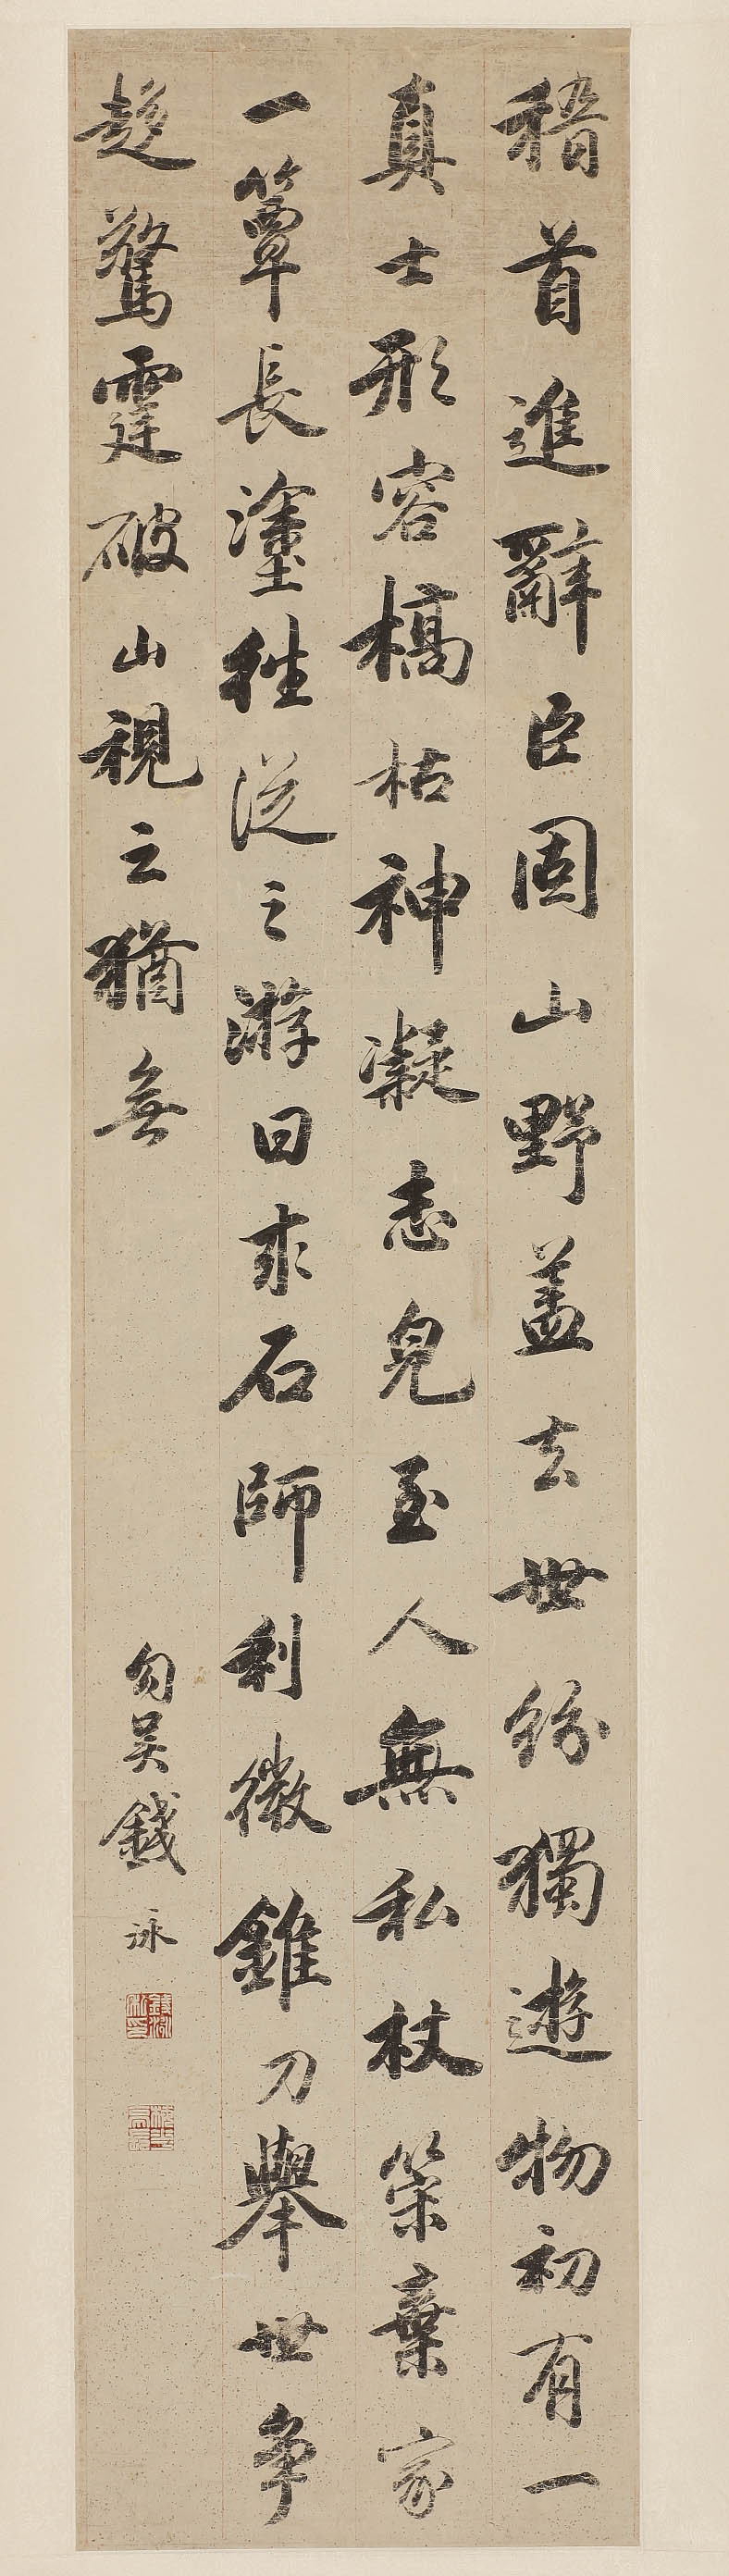 稽首進辭臣固山野盖去世紛獨遊物初有一
真士形容槁枯神凝志皃至人無私杖策棄家
一簞長塗往從之游曰求石師利微錐刀舉世爭
趍驚霆破山視之猶無
勾吴錢泳
錢泳私印